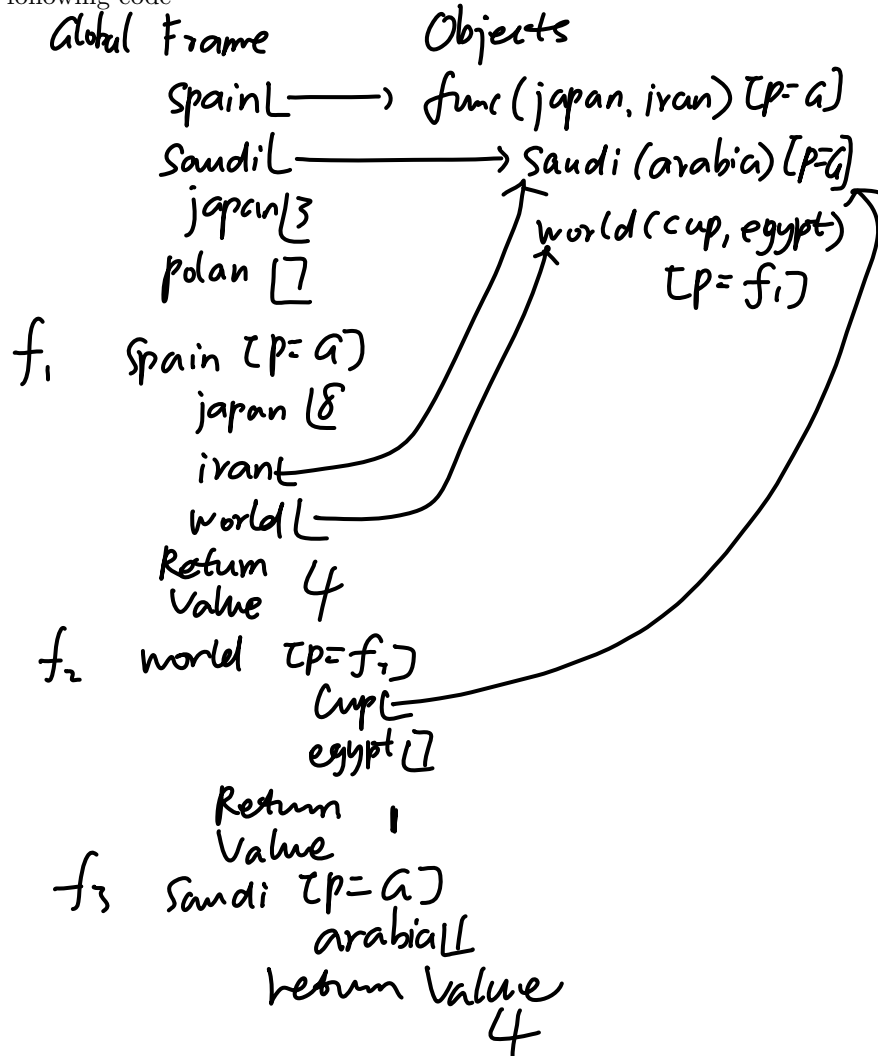 following code
Global Frame Objects
Spain func (japan, iran) [p=G]
Saudi Saudi (arabia) [p=G]
japan 3 world (cup, egypt)
polan 7 [p=f1]
f1 Spain [p=G]
japan 8
iran
world
Return
Value 4
f2 world [p=f1]
Cup
egypt 7
Return
Value 1
f3 Saudi [p=G]
arabia 1
return Value
4